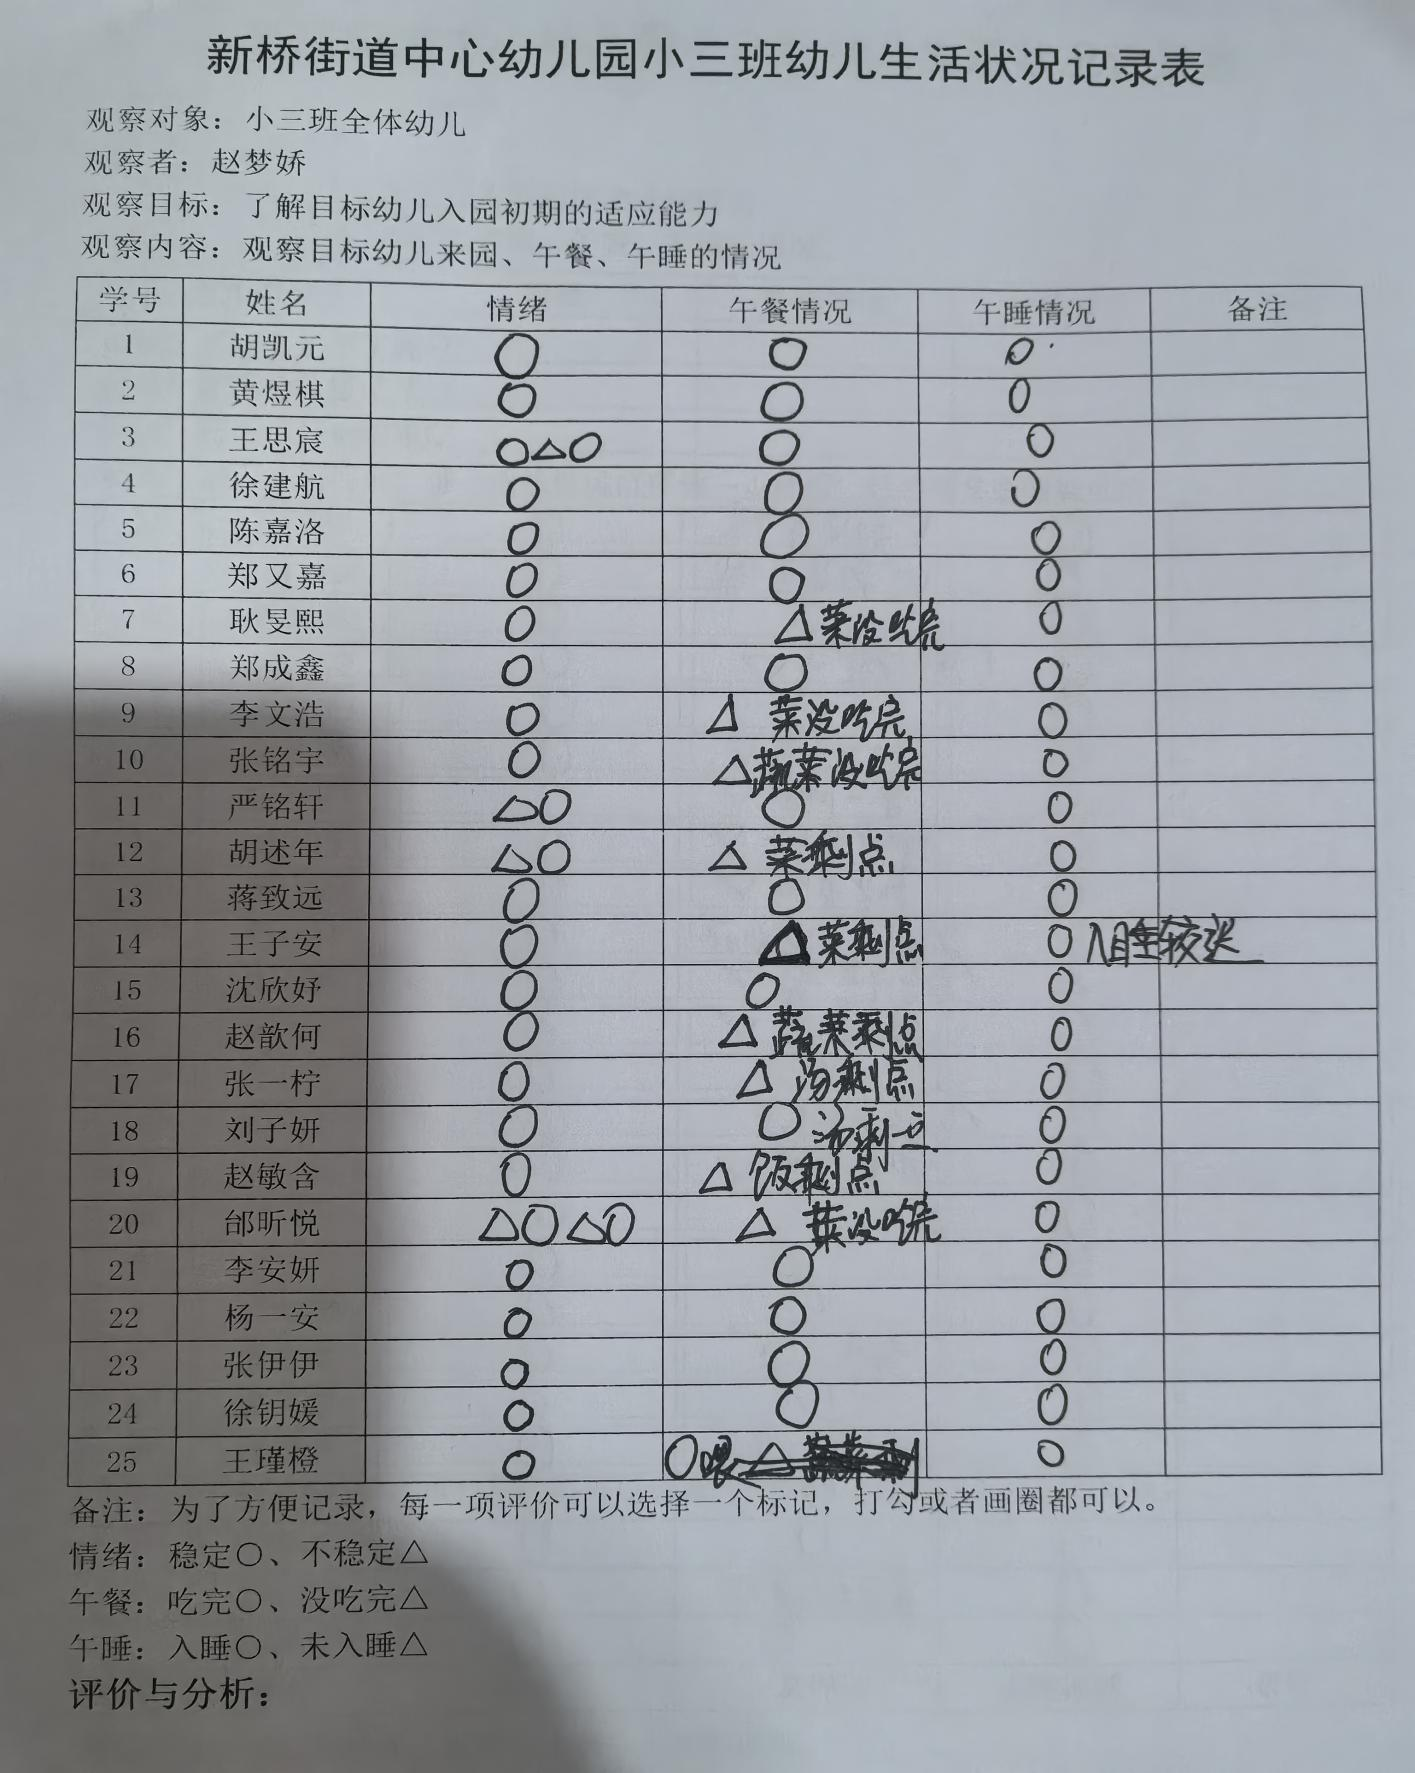 新桥街道中心幼儿园小三班幼儿生活状况记录表
观察对象：小三班全体幼儿
观察者：赵梦娇
观察目标：了解目标幼儿入园初期的适应能力
观察内容：观察目标幼儿来园、午餐、午睡的情况
学号 姓名 情绪 午餐情况 午睡情况 备注
1 胡凯元 ○ ○ ○
2 黄煜棋 ○ ○ ○
3 王思宸 ○△○ ○ ○
4 徐建航 ○ ○ ○
5 陈嘉洛 ○ ○ ○
6 郑又嘉 ○ ○ ○
7 耿旻熙 ○ △菜没吃完 ○
8 郑成鑫 ○ ○ ○
9 李文浩 ○ △ 菜没吃完 ○
10 张铭宇 ○ △蔬菜没吃完 ○
11 严铭轩 △○ ○ ○
12 胡述年 △○ △ 菜剩点 ○
13 蒋致远 ○ ○ ○
14 王子安 ○ △菜剩点 ○入睡较迟
15 沈欣妤 ○ ○ ○
16 赵歆何 ○ △ 蔬菜剩点 ○
17 张一柠 ○ △ 汤剩点 ○
18 刘子妍 ○ ○ 汤剩一点 ○
19 赵敏含 ○ △ 饭剩点 ○
20 邰昕悦 △○△○ △ 菜没吃完 ○
21 李安妍 ○ ○ ○
22 杨一安 ○ ○ ○
23 张伊伊 ○ ○ ○
24 徐钥媛 ○ ○ ○
25 王瑾橙 ○ ○喂 △ ○
备注：为了方便记录，每一项评价可以选择一个标记，打勾或者画圈都可以。
情绪：稳定○、不稳定△
午餐：吃完○、没吃完△
午睡：入睡○、未入睡△
评价与分析：